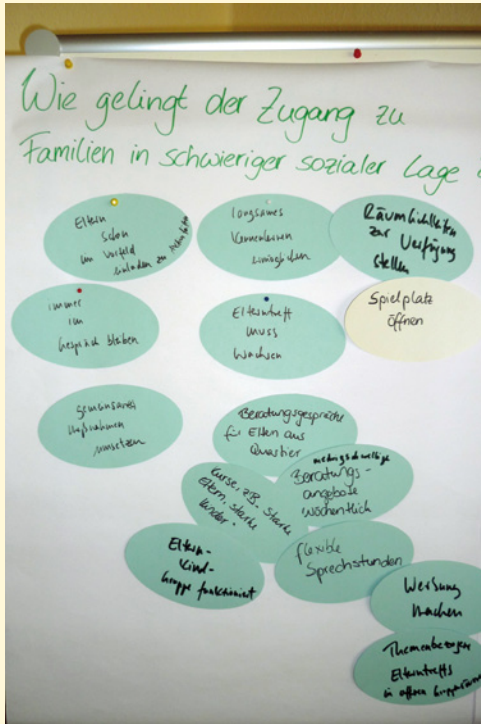 Wie gelingt der Zugang zu
Familien in schwieriger sozialer Lage
Eltern
schon
im Vorfeld
einladen zu
langsames
Kennenlernen
ermöglichen
Räumlichkeiten
zur Verfügung
stellen
immer
im
Gespräch bleiben
Elterntreff
muss
wachsen
Spielplatz
öffnen
gemeinsame
Maßnahmen
umsetzen
Beratungsgespräche
für Eltern aus
Quartier
niedrigschwellige
Beratungs-
angebote
wöchentlich
Kurse, z.B. Starke
Eltern, starke
Kinder
Eltern-
Kind-
Gruppe funktioniert
flexible
Sprechstunden
Werbung
machen
Themenbezogene
Elterntreffs
in offenen